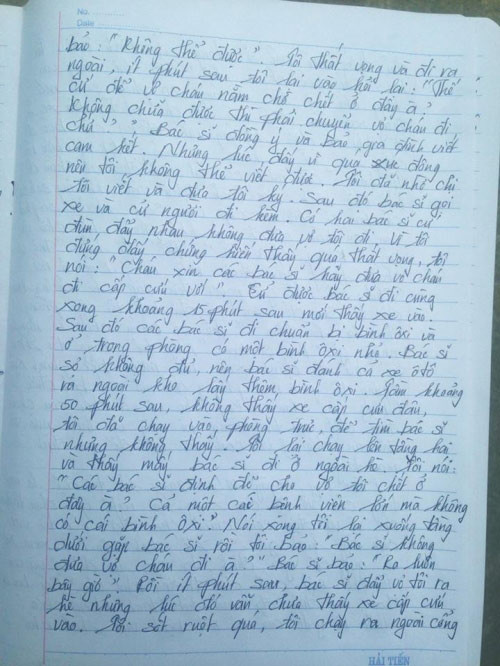 No.
Date
bảo: "Không thể được". Tôi thất vọng và đi ra
ngoài, ít phút sau tôi lại vào hỏi lại: "Thế
cứ để vợ cháu nằm chờ chết ở đây à?
Không chữa được thì phải chuyển vợ cháu đi
chứ?" Bác sĩ đồng ý và bảo gia đình viết
cam kết. Nhưng lúc đấy vì quá xúc động
nên tôi không thể viết được. Tôi đã nhờ chị
tôi viết và đưa tôi ký. Sau đó bác sĩ gọi
xe và cử người đi kèm. Cả hai bác sĩ cứ
đùn đẩy nhau không đưa vợ tôi đi. Vì tôi
đứng đấy chứng kiến thấy quá thất vọng, tôi
nói: "Cháu xin các bác sĩ hãy đưa vợ cháu
đi cấp cứu với". Cử được bác sĩ đi cùng
xong khoảng 15 phút sau mới thấy xe vào.
Sau đó các bác sĩ đi chuẩn bị bình ôxi và
ở trong phòng có một bình ôxi nhỏ. Bác sĩ
sợ không đủ, nên bác sĩ đánh cả xe ôtô
ra ngoài kho lấy thêm bình ôxi. Tầm khoảng
50 phút sau, không thấy xe cấp cứu đâu,
tôi đã chạy vào phòng trực để tìm bác sĩ
nhưng không thấy. Tôi lại chạy lên tầng hai
và thấy mấy bác sĩ đi ở ngoài hè. Tôi nói:
"Các bác sĩ định để cho vợ tôi chết ở
đây à? Cả một các bệnh viện lớn mà không
có cái bình ôxi". Nói xong tôi lại xuống tầng
dưới gặp bác sĩ rồi tôi bảo: "Bác sĩ không
đưa vợ cháu đi à?" Bác sĩ bảo: "Ra luôn
bây giờ". Rồi ít phút sau, bác sĩ đẩy vợ tôi ra
hè nhưng lúc đó vẫn chưa thấy xe cấp cứu
vào. Tôi sốt ruột quá, tôi chạy ra ngoài cổng
HẢI TIẾN